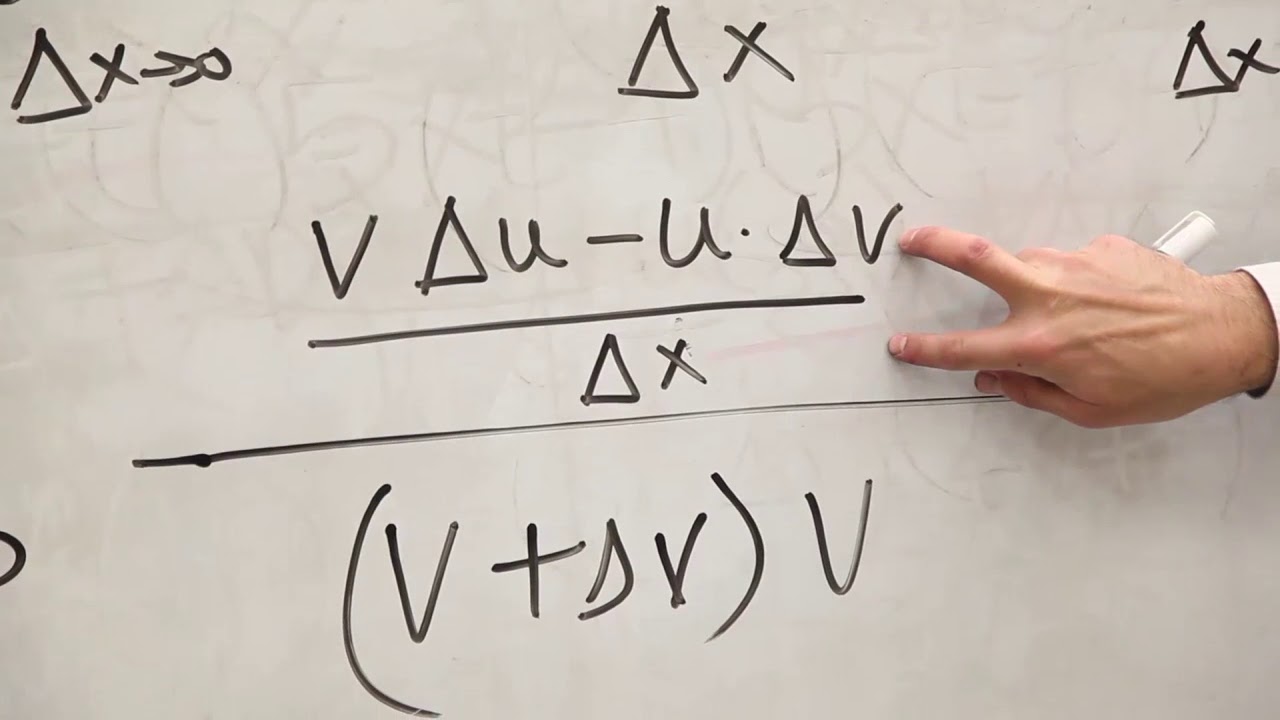 Δx→0 Δx Δx
VΔu-u·Δv
Δx
(V+Δv)V